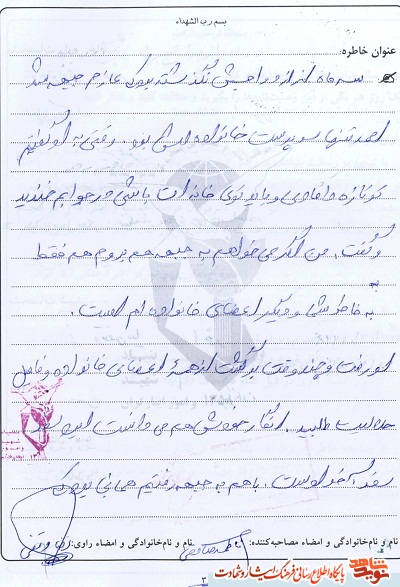 بسم رب الشهداء
عنوان خاطره:
سه ماه از ازدواجش نگذشته بود که عازم جبهه شد
احمد تنها سرپرست خانواده اش بود. وقتی به او گفتیم
تو تازه دامادی و باید توی خانه ات باشی در جوابم خندید
و گفت. من اگر می خواهم به جبهه هم بروم هم فقط
به
به خاطر شما و دیگر اعضای خانواده ام است.
او رفت و چند وقت برگشت از همۀ اعضای خانواده و فامیل
حلالیت طلبید. انگار خودش هم می دانست این
آخر است. با هم به جبهه رفتیم همانی بود که
نام و نام‌خانوادگی و امضاء مصاحبه‌کننده:
نام و نام‌خانوادگی و امضاء راوی:
۳
نوید شاهد
پایگاه اطلاع رسانی فرهنگ ایثار و شهادت